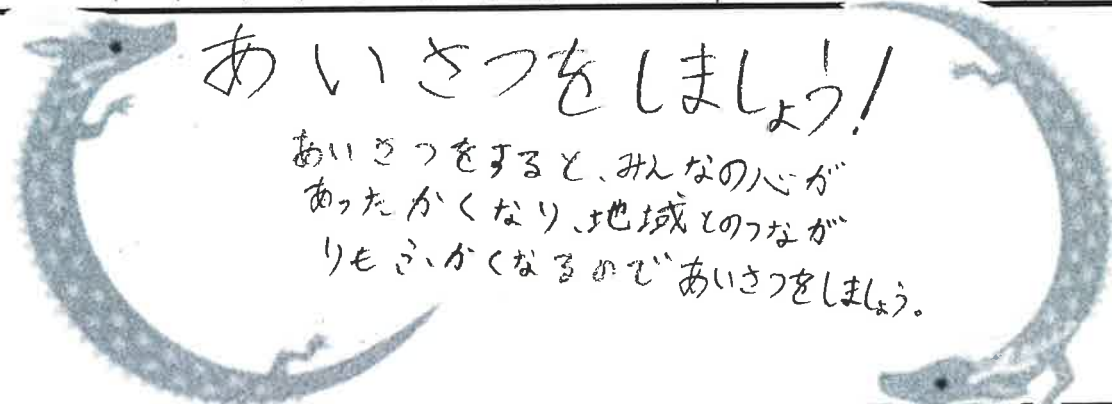 あいさつをしましょう!
あいさつをすると、みんなの心が
あったかくなり、地域とのつなが
りもふかくなるのであいさつをしましょう。